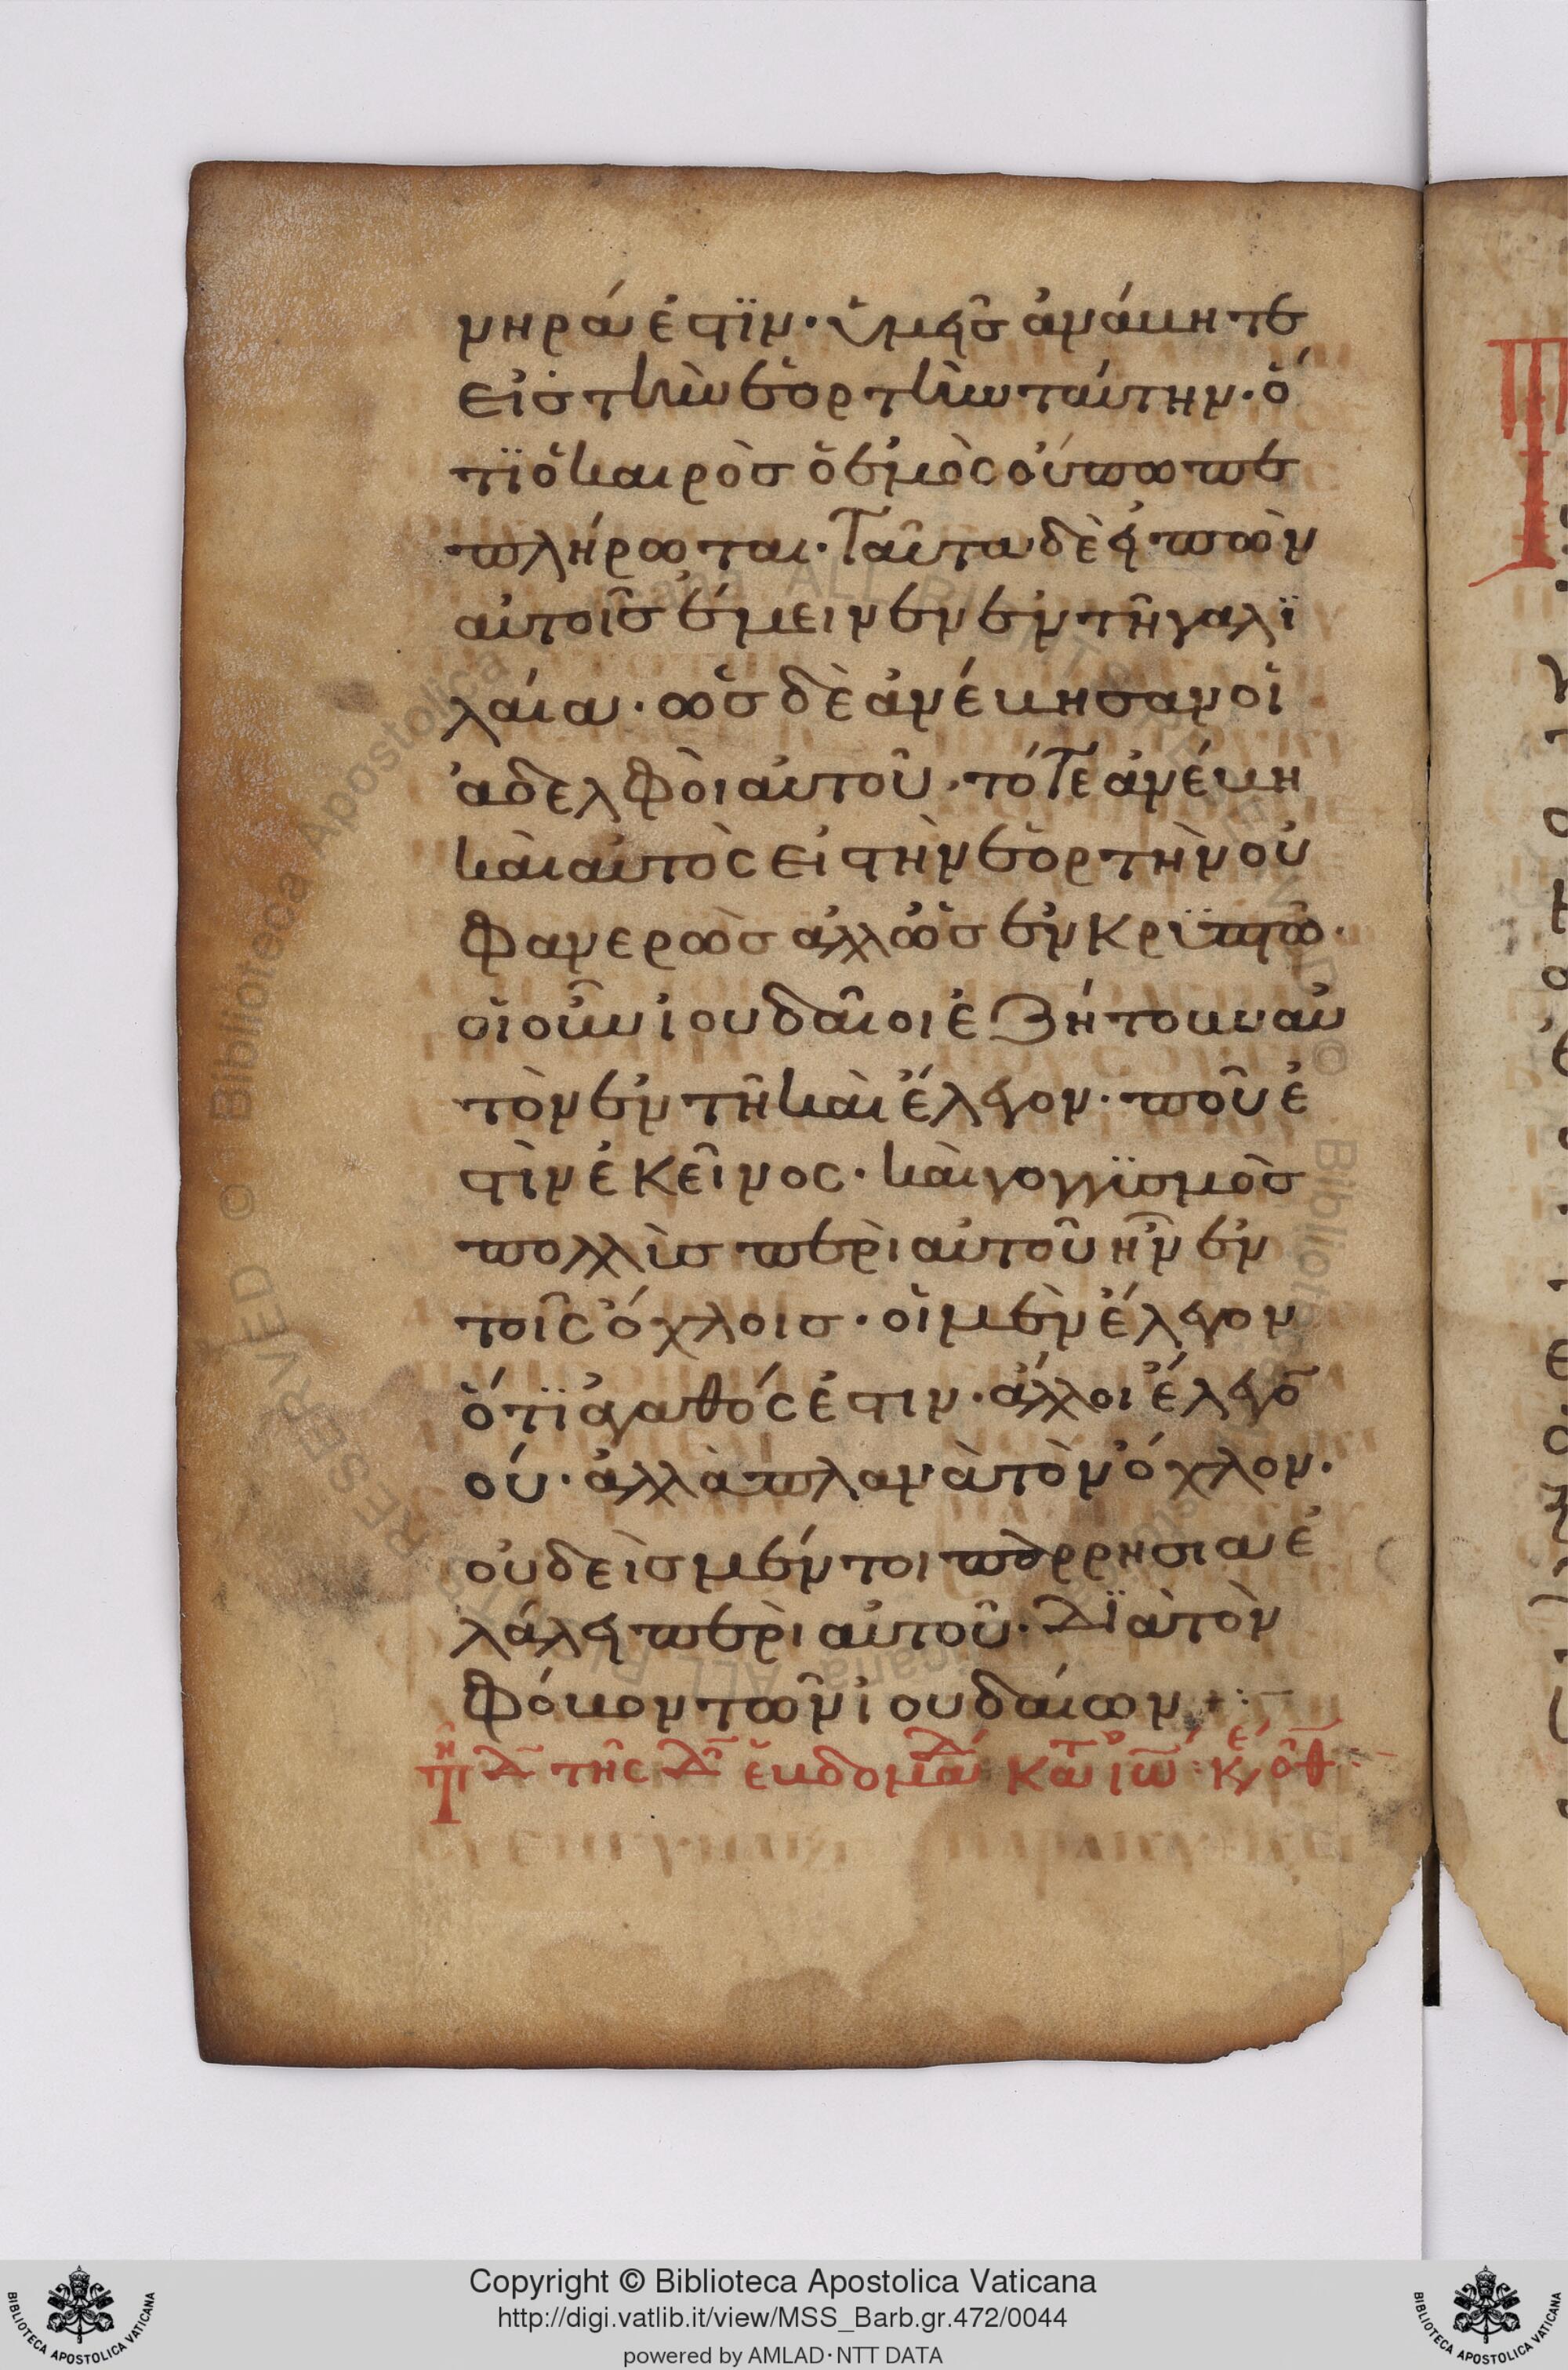 νηρά ἐστϊν· ὑμεῖς ἀνάβητε
εἰς τὴν ἑορτὴν ταύτην· ὅ
τϊ ὁ καιρὸς ὁ ἐμὸς οὔπω πε
πλήρωται· Ταῦτα δὲ εἰπὼν
αὐτοῖς ἔμεινεν ἐν τῆ γαλϊ
λαία· ὡς δὲ ἀνέβησαν οἱ
ἀδελφὸι αὐτοῦ· τότε ἀνέβη
κὰι αὐτὸς εἰ στὴν ἑορτὴν οὐ
φανερὼς ἀλλ ὡς ἐν κρϋπτῶ·
οἱ οὖν ἰουδαῖοι ἐζήτουν αὐ
τὸν ἐν τῆ κὰι ἔλεγον· ποῦ ἐ
στὶν ἐκεῖνος· κὰι γογγϋσμὸς
πολλὺς περὶ αὐτοῦ ἦν ἐν
τοῖς ὄχλοις· οἱ μὲν ἔλεγον
ὅτϊ ἀγαθός ἐστιν· ἄλλοι ἔλεγο̅
οὔ· ἀλλὰ πλανὰ τὸν ὄχλον·
οὐδεὶς μέντοι παρρησια ἐ
λάλει περὶ αὐτοῦ· Δϊὰ τὸν
φόβον τῶν ἰουδαίων
τῆ δ̅ τῆς δ̅ ἑβδομαδ κατ ἰω̅ κε οθ
Copyright © Biblioteca Apostolica Vaticana
http://digi.vatlib.it/view/MSS_Barb.gr.472/0044
powered by AMLAD·NTT DATA